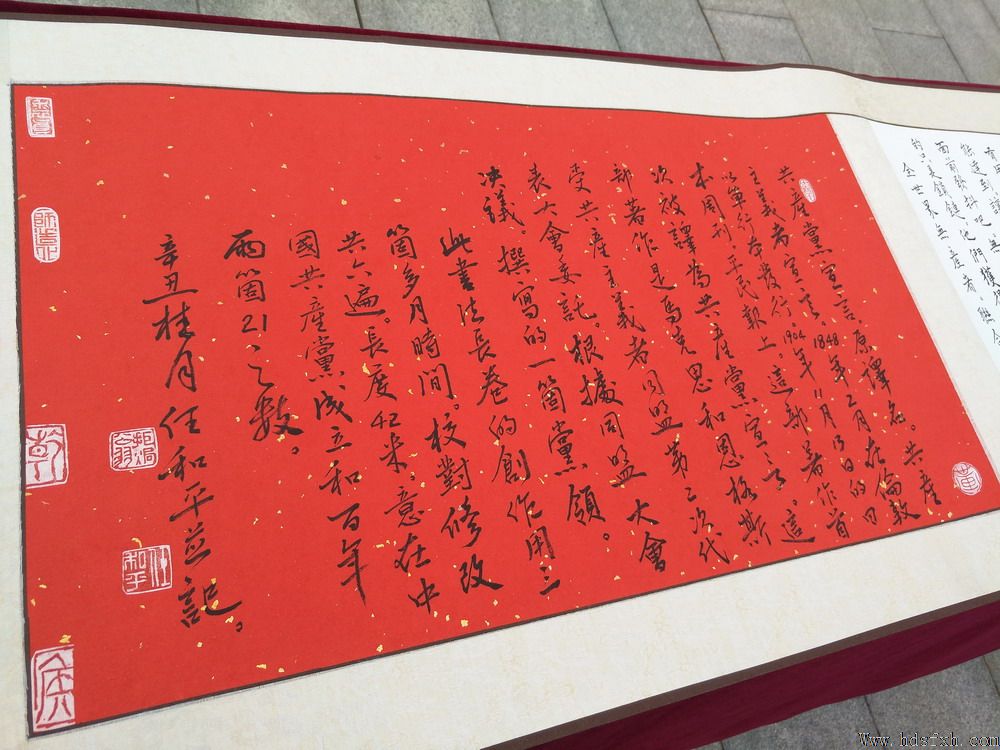 首
能達到
面前發抖吧。無
的只是鎖鏈。他們獲
全世界無產者，聯合
共產黨宣言。原譯名。共產
主義者宣言。1848年二月在倫敦
以單行本發行。1904年11月13日的日
本周刊平民報上。這部著作首
次被譯為共產黨宣言。這
部著作是馬克思和恩格斯
受共產主義者同盟第二次代
表大會委託。根據同盟大會
决議。撰寫的一箇黨領。
此書法長卷的創作用三
箇多月時間。校對修改
共六遍。長度42米。意在中
國共產黨成立和百年
兩箇21之數。
辛丑桂月任和平並記。
任和平
Www.hdsfxh.com